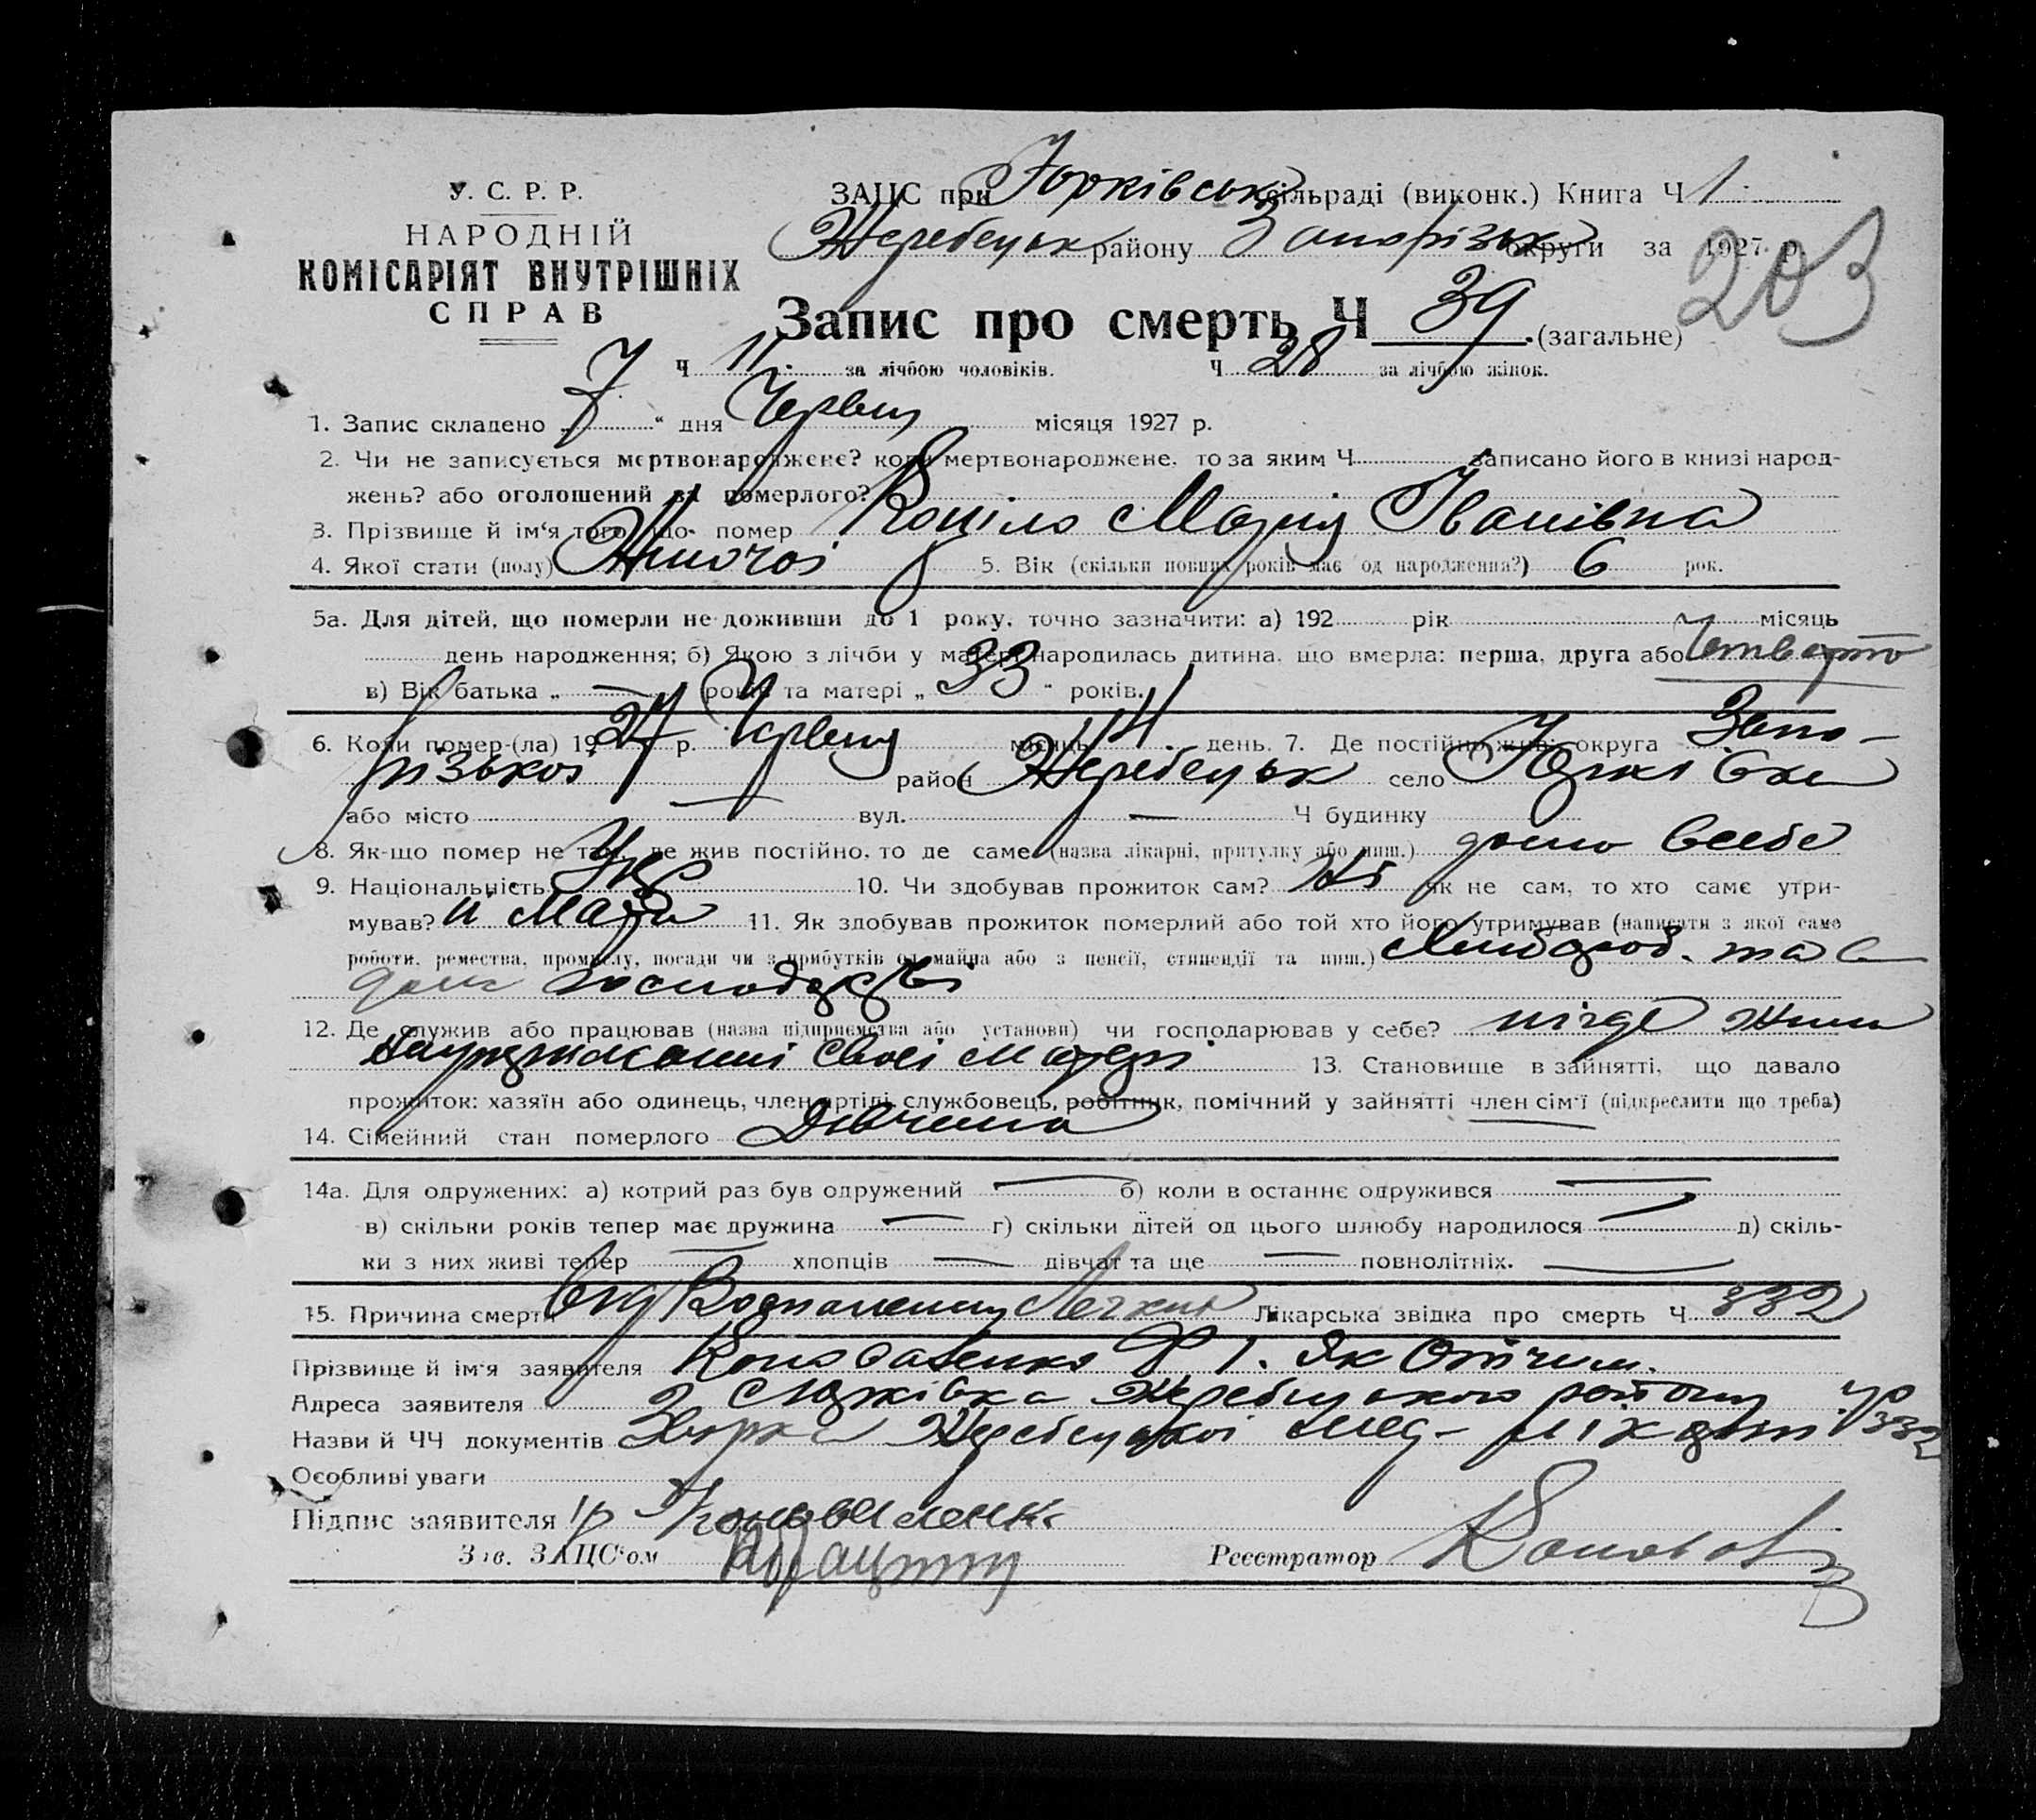 У. С. Р. Р.
НАРОДНІЙ
КОМІСАРІЯТ ВНУТРІШНІХ
СПРАВ
ЗАЦС при Юрківськ сільраді (виконк.) Книга Ч 1
Жеребецьк району Запорізьк округи за 1927 р.
203
Запис про смерть Ч 39 (загальне)
Ч 11. за лічбою чоловіків. Ч 28 за лічбою жінок.
1. Запис складено „ 7 “ дня Червця місяця 1927 р.
2. Чи не записується мертвонароджене? коли мертвонароджене, то за яким Ч записано його в книзі народ-
жень? або оголошений за померлого?
3. Прізвище й ім‘я того, що помер Марія Іванівна
4. Якої статі (полу) Жіночої 5. Вік (скільки повних років має од народження?) 6 рок.
5а. Для дітей, що померли не доживши до 1 року, точно зазначити: а) 192 рік місяць
день народження; б) Якою з лічби у матері народилась дитина, що вмерла: перша, друга або Четверто
в) Вік батька „ — років та матері „ 33 “ років.
6. Коли помер-(ла) 1927 р. Червця місяць 4. день. 7. Де постійно жив: округа Запо-
різької район Жеребецьк село Юрківка
або місто — вул. — Ч будинку
8. Як-що помер не там, де жив постійно, то де саме (назва лікарні, притулку або инш.) дома всебе
9. Національність Укр 10. Чи здобував прожиток сам? Ні як не сам, то хто саме утри-
мував? її Мати 11. Як здобував прожиток померлий або той хто його утримував (написати з якої само
роботи, ремества, промислу, посади чи з прибутків од майна або з пенсії, стипендії та инш.) Хлібороб. та в
дом господарстві
12. Де служив або працював (назва підприємства або установи) чи господарював у себе? нігде жила
наутриманні своєї матері 13. Становище в зайнятті, що давало
прожиток: хазяїн або одинець, член артілі, службовець, робітник, помічний у зайнятті член сім‘ї (підкреслити що треба)
14. Сімейний стан померлого Дівчина
14а. Для одружених: а) котрий раз був одружений — б) коли в останнє одружився —
в) скільки років тепер має дружина — г) скільки дітей од цього шлюбу народилося — д) скіль-
ки з них живі тепер — хлопців — дівчат та ще — повнолітніх. —
15. Причина смерти від Воспаления Легких Лікарська звідка про смерть Ч 332
Прізвище й ім‘я заявителя Коноваленко І. як Отчим.
Адреса заявителя с Юрківка Жеребецького району
Назви й ЧЧ документів Жеребецької мед- № 332
Особливі уваги
Підпис заявителя Коноваленко
Зав. ЗАЦС‘ом
Реєстратор